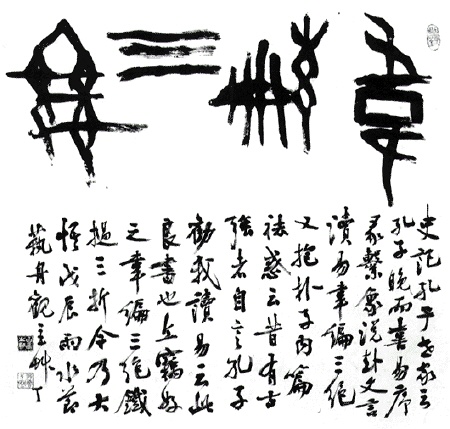 韋編三絕
史記孔子世家云
孔子晚而喜易序
彖繫象說卦文言
讀易韋編三絕
又抱朴子內篇
祛惑云昔有古
強者自言孔子
勸我讀易云此
良書也丘竊好
之韋編三絕鐵
撾三折今乃大
悟戊辰雨水節
觀主艸